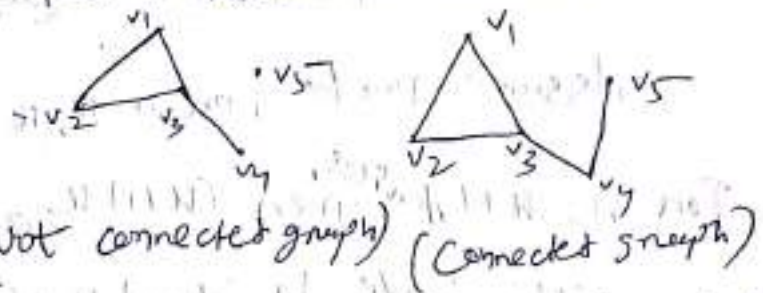 v1 v1
v5 v5
v2 v3 v2 v3
v4 v4
(Not connected graph) (Connected graph)